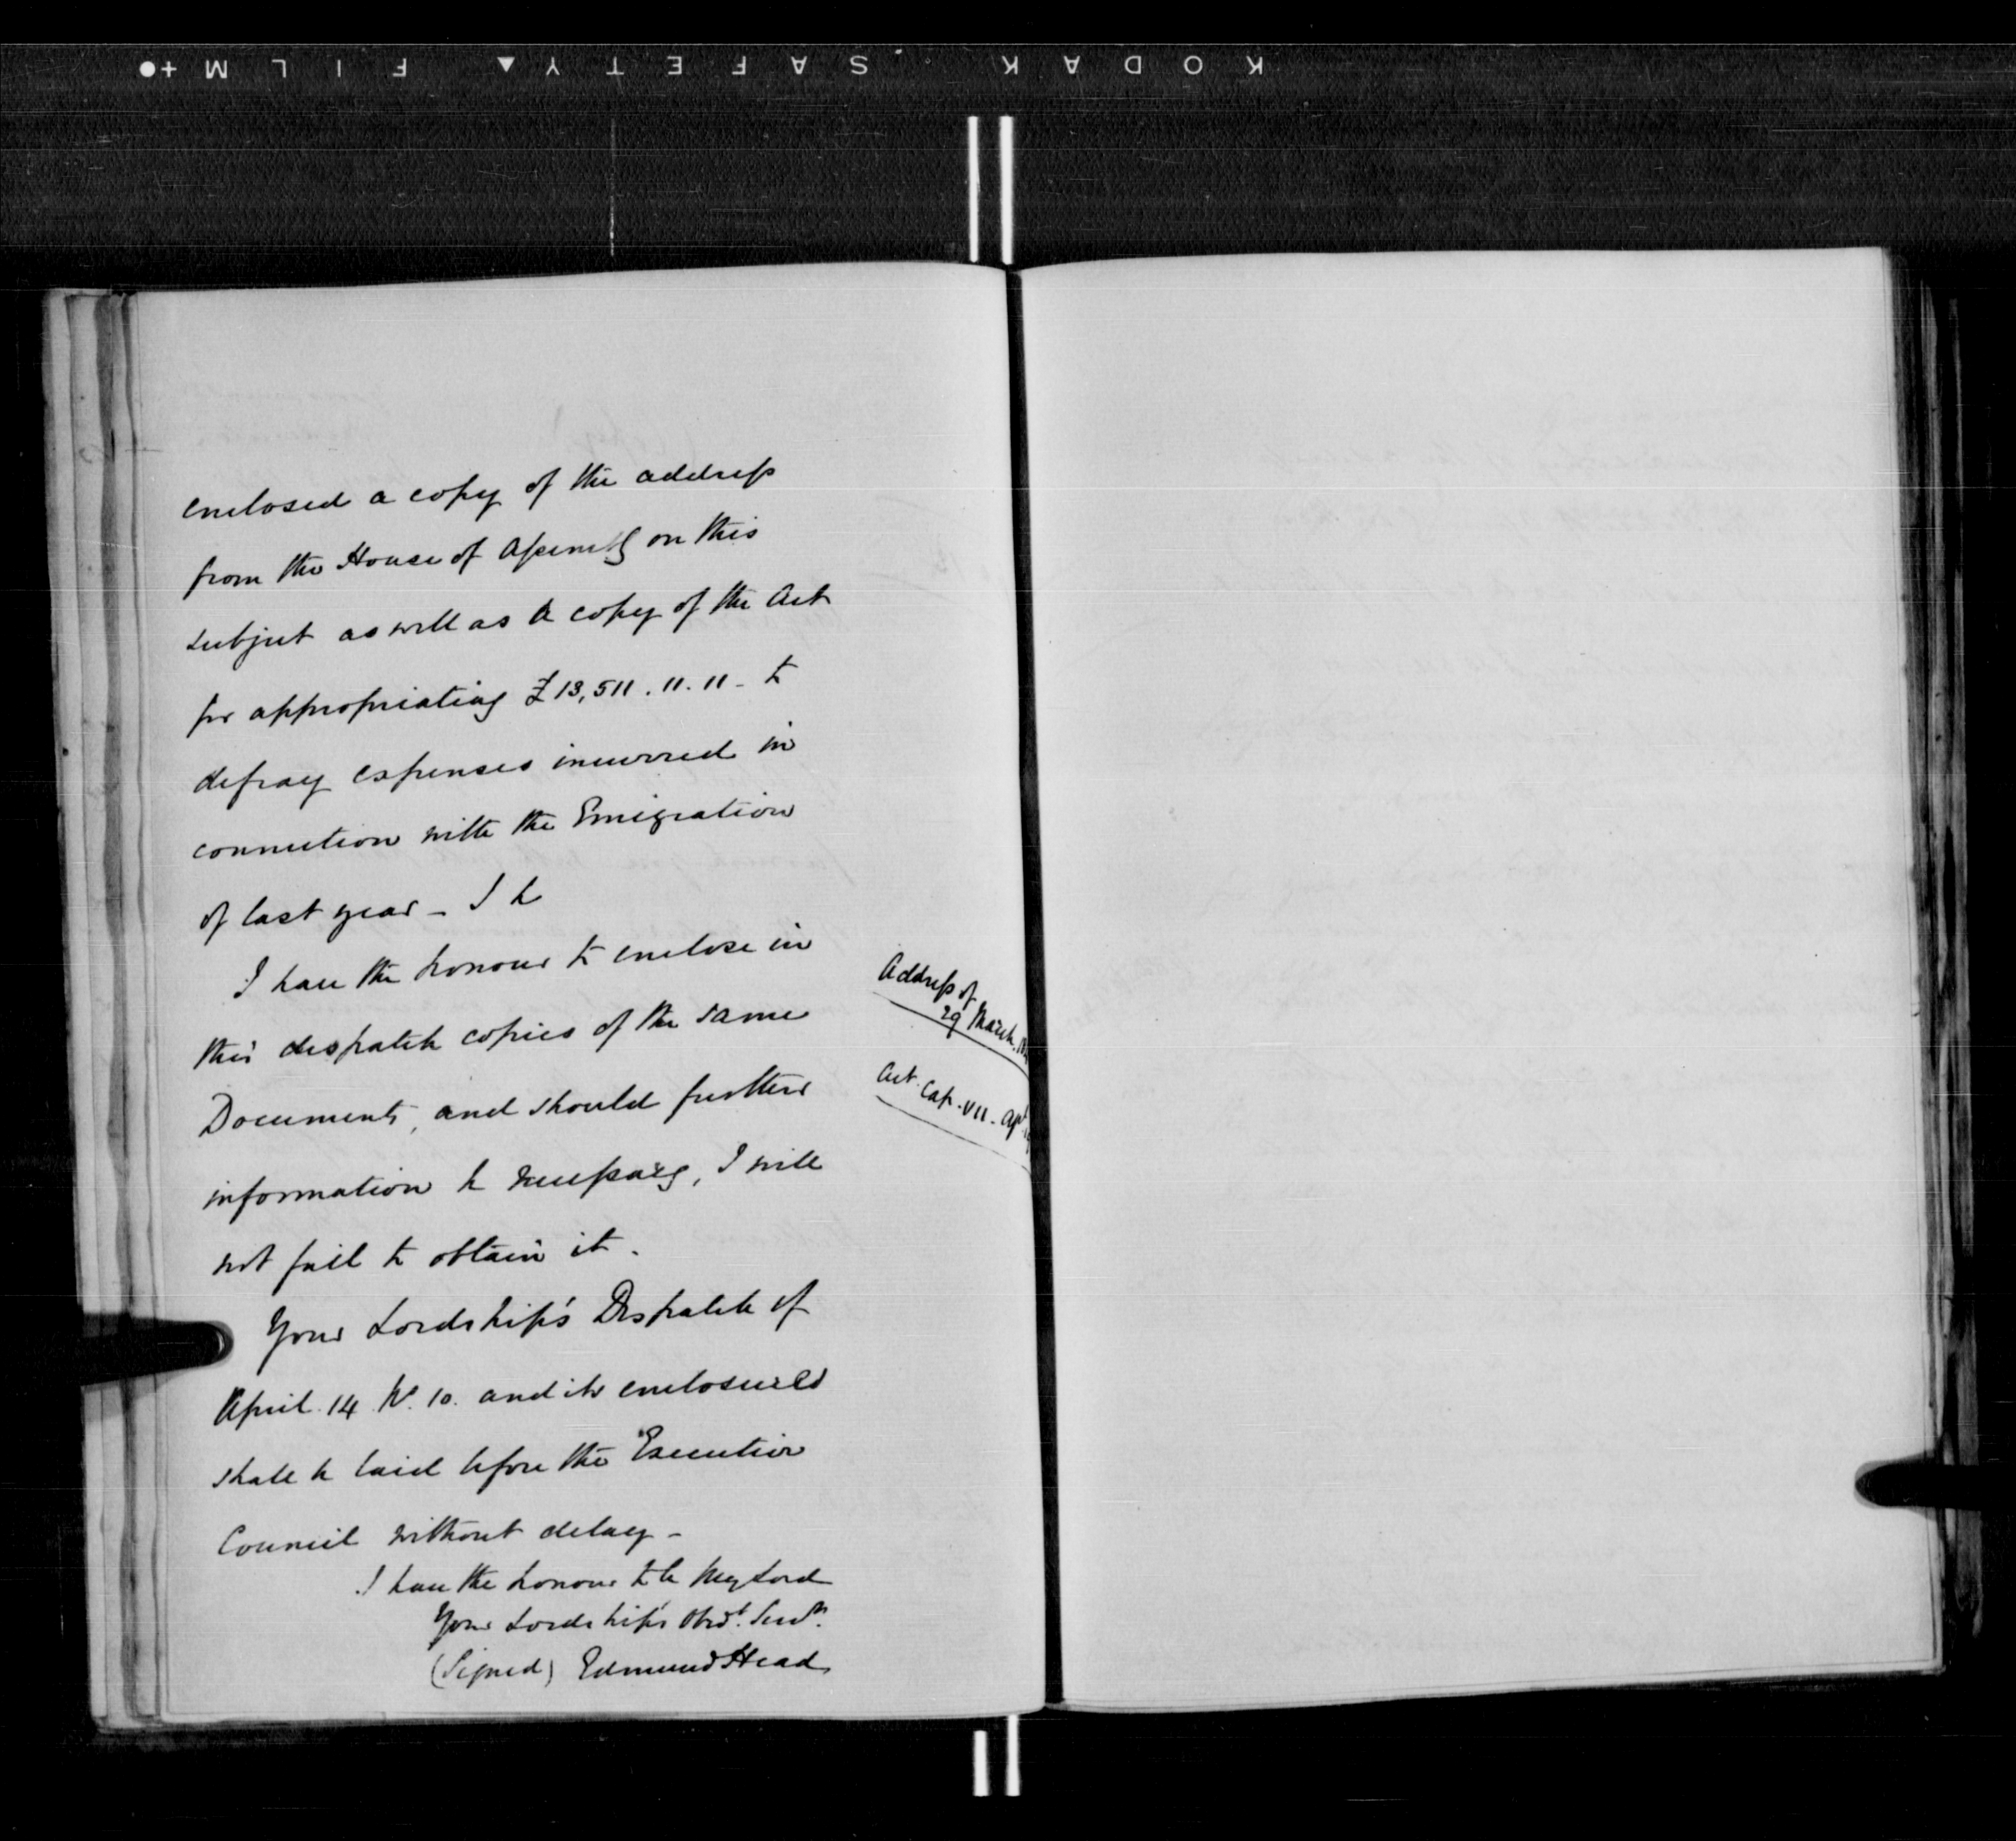 KODAK · SAFETY ▲ FILM +●
enclosed a copy of the address
from the House of Assembly on this
subject as well as a copy of the Act
for appropriating £13,511.11.11 - to
defray expenses incurred in
connection with the Emigration
of last year - I h
I have the honour to enclose in
this despatch copies of the same
Documents, and should further
information be necessary, I will
not fail to obtain it.
Address of
29 March.
Act. Cap. VII.
Your Lordship's Despatch of
April 14 No. 10. and its enclosures
shall be laid before the Executive
Council without delay -
I have the honour to be My Lord
Your Lordship's Obdt. Servt.
(Signed) Edmund Head